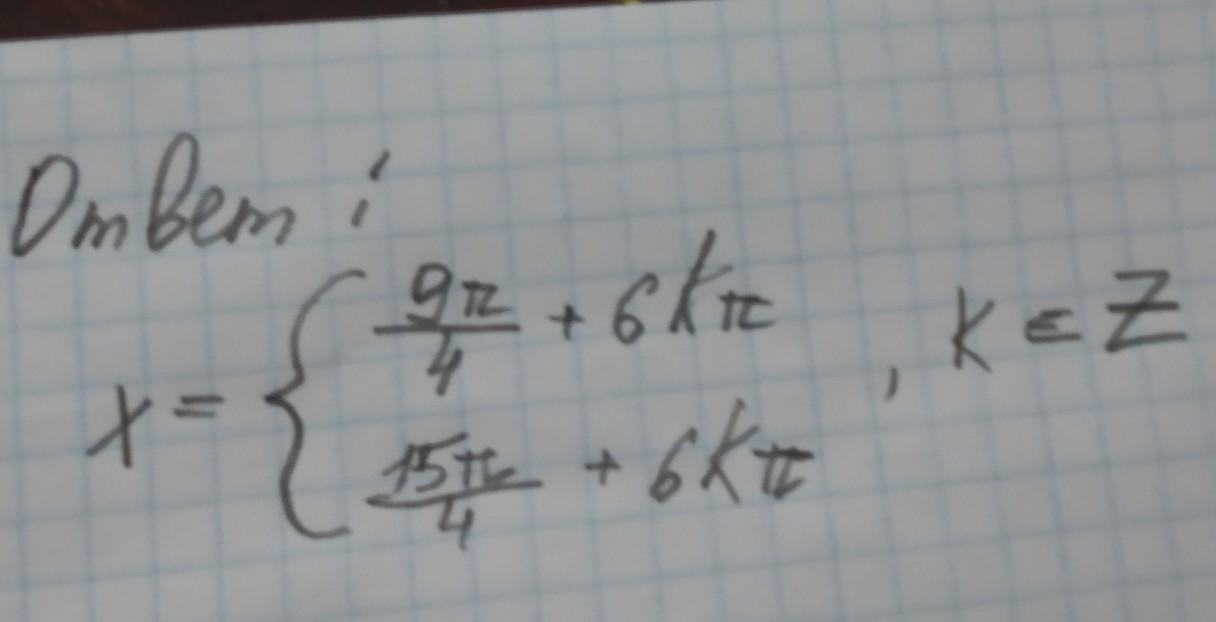 Ответ:
x = { 9π/4 + 6kπ
15π/4 + 6kπ , k ∈ Z